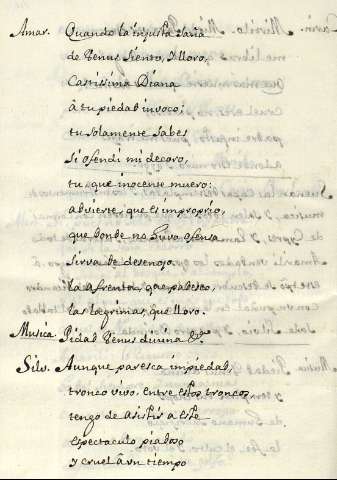 Amar. Quando la injusta saña
de Venus siento, y lloro,
Castissima Diana
â tu piedad invoco;
tu solamente sabes
si ofendi mi decoro,
tu, que inocente muero:
advierte, que es improprio,
que donde no sirva ofensa
sirva de desenojo.
la afrenta, que padesco,
las lagrimas, que lloro.
Musica. Piedad Venus divina &ª.
Silv. Aunque paresca impiedad,
tronco vivo, entre estos troncos,
tengo de asistir a este
espectaculo piadoso
y cruel â un tiempo